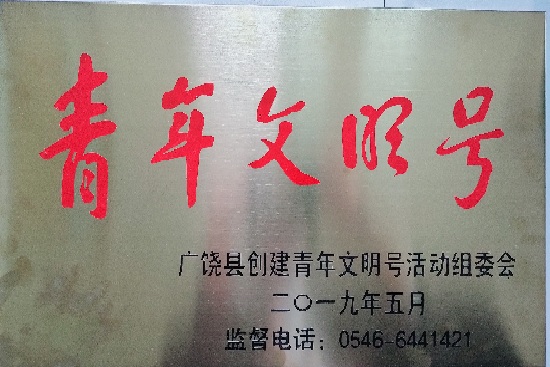 青年文明号
广饶县创建青年文明号活动组委会
二〇一九年五月
监督电话：0546-6441421